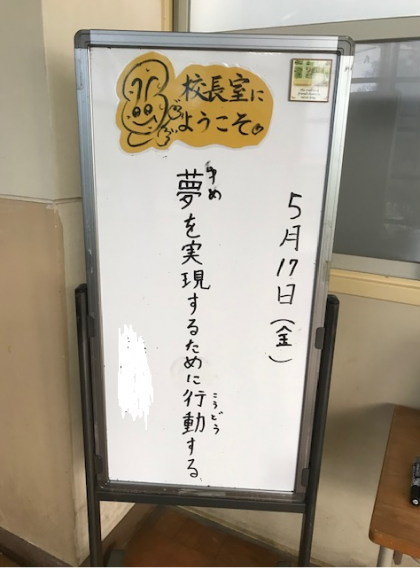 校長室に
ようこそ。
5月17日(金)
夢を実現するために行動する
ゆめ
こうどう